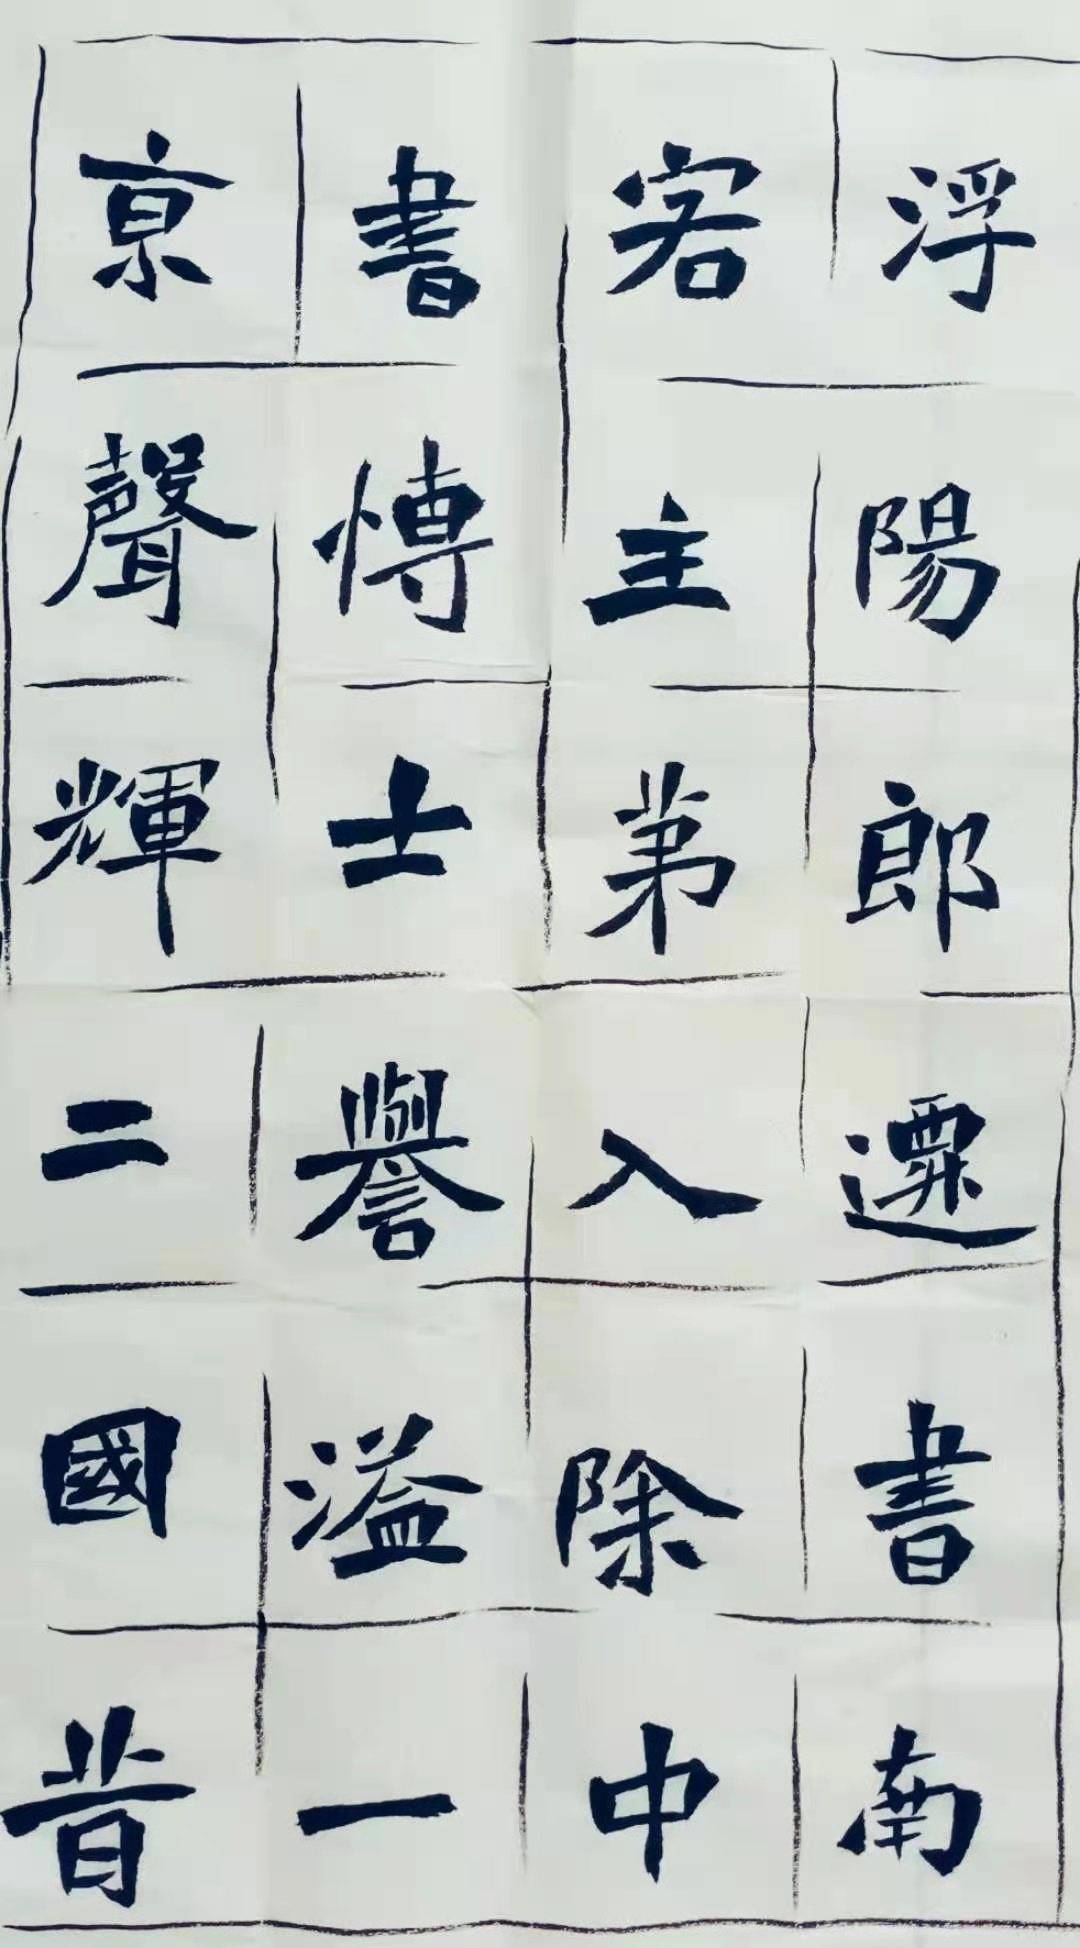 浮陽郎遷書南
客主苐入除中
書愽士譽溢一
亰聲輝二國昔